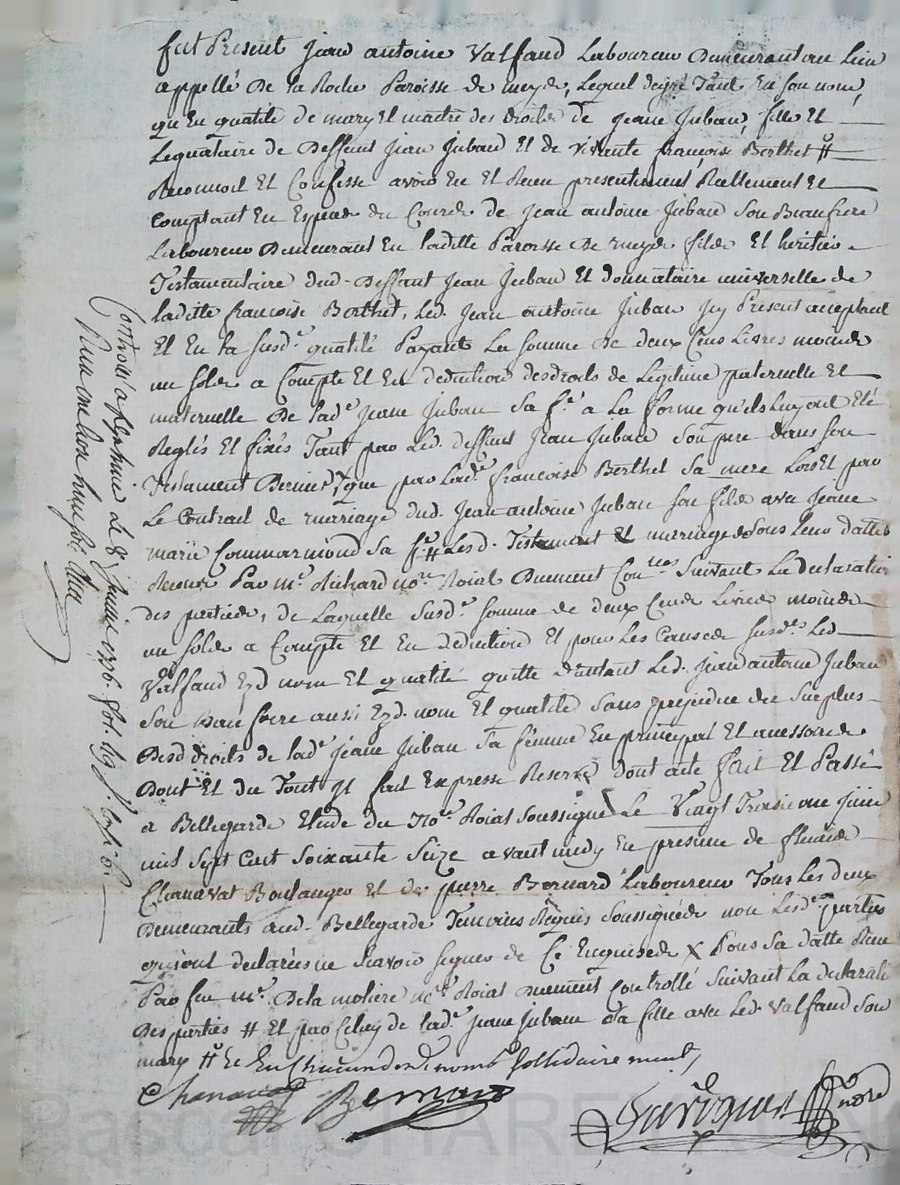 fut Present Jean antoine Valfaud Laboureur Demeurant au Lieu
appellé De la Roche Paroisse de meys, Lequel degré Tant En son nom,
qu'En qualité de mary Et maitre des droits de Jeane Juban, fille Et
Legataire de Deffunt Jean Juban Et de vivente françoise Berthet #
Reconnoit Et Confesse avoir Eu Et Receu presentement Reellement Et
Comptant En Especes du Cours de Jean antoine Juban Son Beaufrere
Laboureur Demeurant En laditte Paroisse De meys fils Et heritier
Testamentaire dud. Deffunt Jean Juban Et donnataire universelle de
laditte françoise Berthet, Led. Jean antoine Juban Icy Present acceptant
Et En la susd.e qualité Payant La somme De deux Cens Livres moins
un solds a Compte Et En deduction des droits de Legitime paternelle Et
maternelle De lad.e Jeane Juban Sa f.e a La forme qu'ils Luy ont Eté
Reglés Et fixés Tant par Led. deffunt Jean Juban Son pere dans son
Testament Dernier, que par Lad.e françoise Berthet Sa mere Lors Et par
Le Contrat de mariage dud. Jean antoine Juban son fils avec Jeane
marie Commarmond Sa f.e # Lesd. Testament & mariage Sous Leur dattes
Receus Par m.e Richard no.re Roial Duement Con.lés Suivant La declaration
des parties, de Laquelle Susd.e somme de deux Cends Livres moins
un solds a Compte Et En deduction Et pour Les Causes susd.es Led.
Valfaud Ezd nom Et qualité quitte d'autant Led. Jean antoine Juban
Son Beau frere aussi Ezd. nom Et qualité Sans prejudice du Surplus
Desd droits de lad.e Jeane Juban Sa femme En principal Et acessoires
Dont Et du Tout Il fait Expresse Reserve, dont acte fait Et Passé
a Bellegarde Etude du No.re Roial Soussigné Le Vingt Troisieme Juin
mil Sept Cent Soixante Seize avant midy En presence de fleurie
Chanavat Boulanger Et de pierre Bernard Laboureur Tous Les deux
Demeurants aud. Bellegarde Temoins Requis Soussignés non Lesd.es parties
qui ont declarées ne Scavoir signer de Ce Enquises X Sous Sa datte Receu
Par feu m.e De la moliere no.re Roial Duement Controllé Suivant La declarat.
Des parties # Et par Celuy de Lad.e Jeane Juban Sa fille avec Led. Valfaud Son
mary # Et En Chacun desd. noms sollidairement,
Chanavat Bernard
nore
Controlé a Le 8 1776. fol. 19